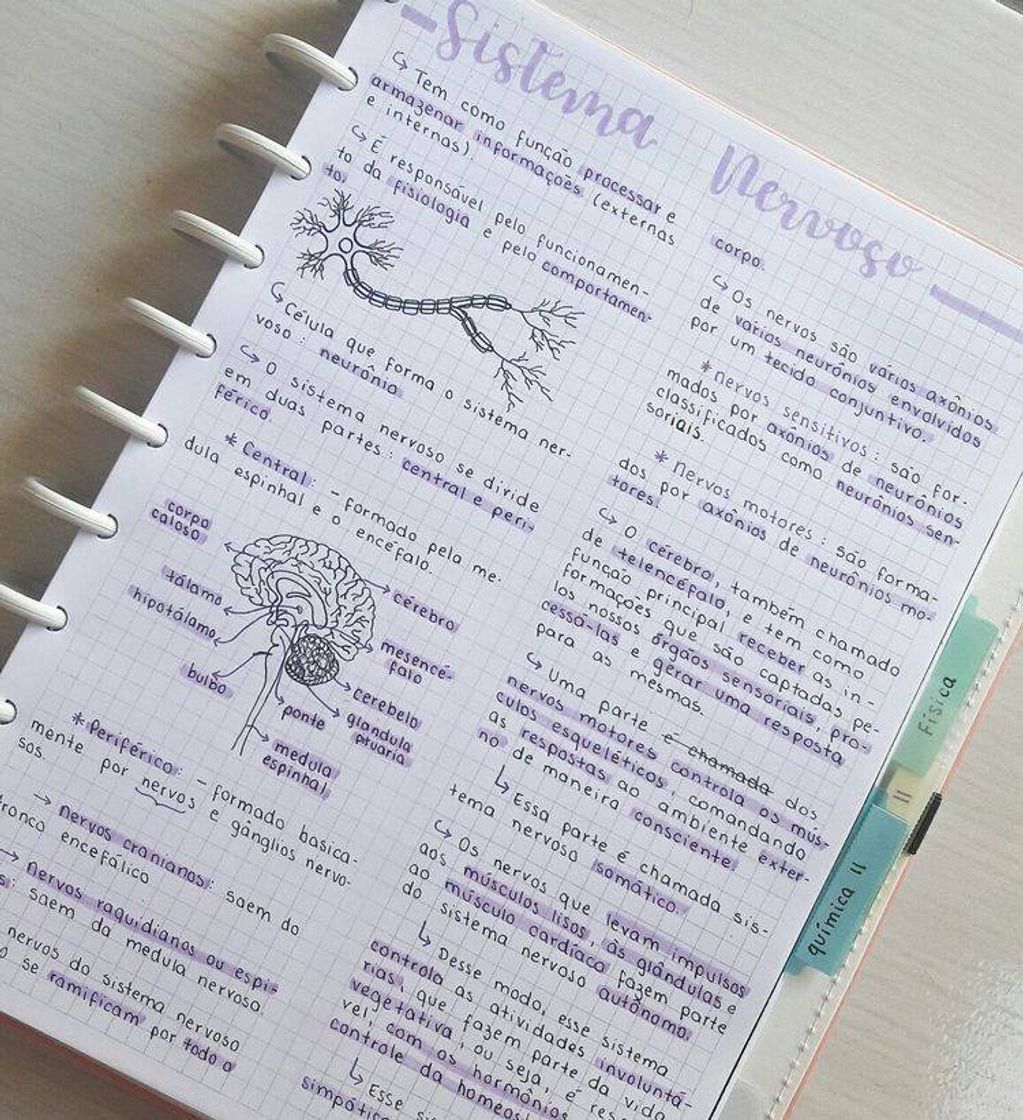 Sistema Nervoso
↳ Tem como função processar e
armazenar informações (externas
e internas).
↳ É responsável pelo funcionamen-
to da fisiologia e pelo comportamen-
to.
↳ Célula que forma o sistema ner-
voso: neurônio
↳ O sistema nervoso se divide
em duas partes: central e peri-
férico.
* Central: - formado pela me-
dula espinhal e o encéfalo.
corpo
caloso
tálamo
hipotálamo
bulbo
cérebro
mesencé-
falo
cerebelo
glandula
ptuaria
ponte
medula
espinhal
* Periférico: - formado basica-
mente por nervos e gânglios nervo-
sos.
→ nervos cranianos: saem do
tronco encefálico
→ nervos raquidianos ou espi-
s: saem da medula nervosa.
nervos do sistema nervoso
se ramificam por todo o
corpo.
↳ Os nervos são vários axônios
de vários neurônios envolvidos
por um tecido conjuntivo.
* nervos sensitivos: são for-
mados por axônios de neurônios
classificados como neurônios sen-
soriais.
* nervos motores: são forma-
dos por axônios de neurônios mo-
tores.
↳ O cérebro, também chamado
de telencéfalo, e tem como
função principal receber as in-
formações que são captadas pe-
los nossos órgãos sensoriais, pro-
cessá-las e gerar uma resposta
para as mesmas.
↳ Uma parte é chamada dos
nervos motores controla os mús-
culos esqueléticos, comandando
as respostas ao ambiente exter-
no de maneira consciente.
↳ Essa parte é chamada sis-
tema nervoso somático.
↳ Os nervos que levam impulsos
aos músculos lisos, às glândulas e
ao músculo cardíaco fazem parte
do sistema nervoso autônomo.
↳ Desse modo, esse sistema
controla as atividades involuntá-
rias, que fazem parte da vida
vegetativa, ou seja, é res
vel, com os hormônios
controle da homeos
↳ Esse si
simpátic
Física
II
química II